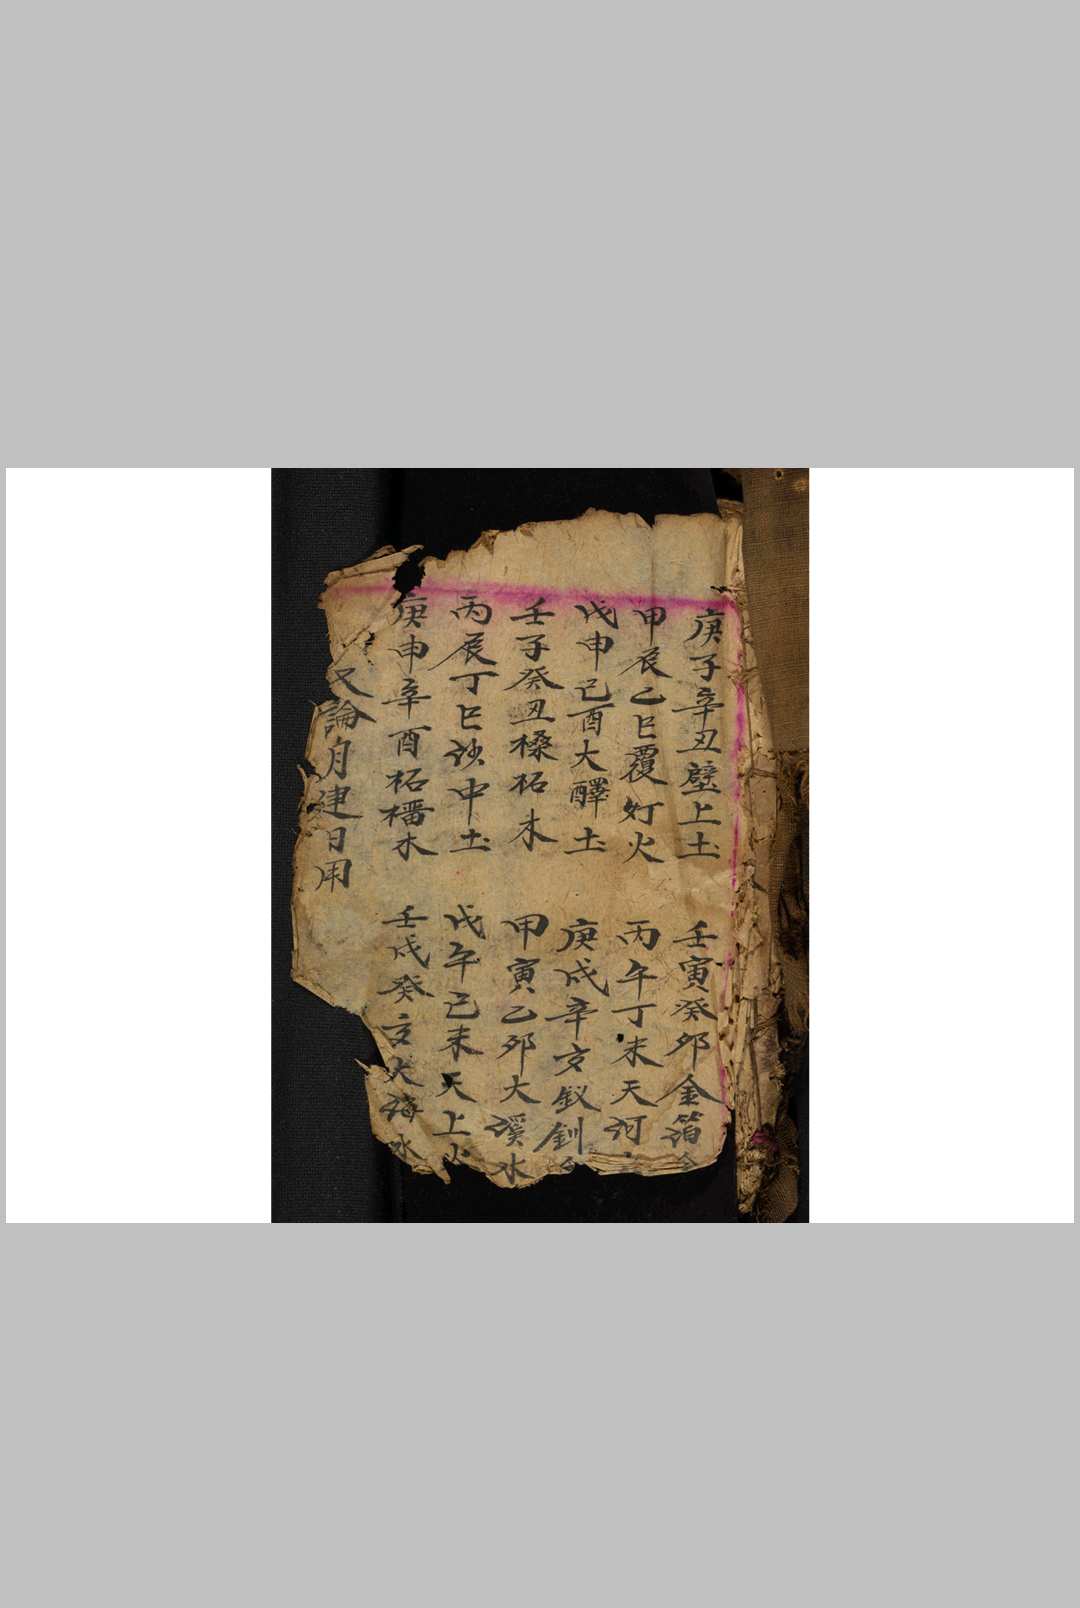 庚子辛丑壁上土
壬寅癸卯金箔金
甲辰乙巳覆灯火
丙午丁未天河
戊申己酉大驛土
庚戌辛亥釵釧
壬子癸丑桑柘木
甲寅乙卯大溪水
丙辰丁巳沙中土
戊午己未天上火
庚申辛酉柘榴木
壬戌癸亥大海水
又論月建日用